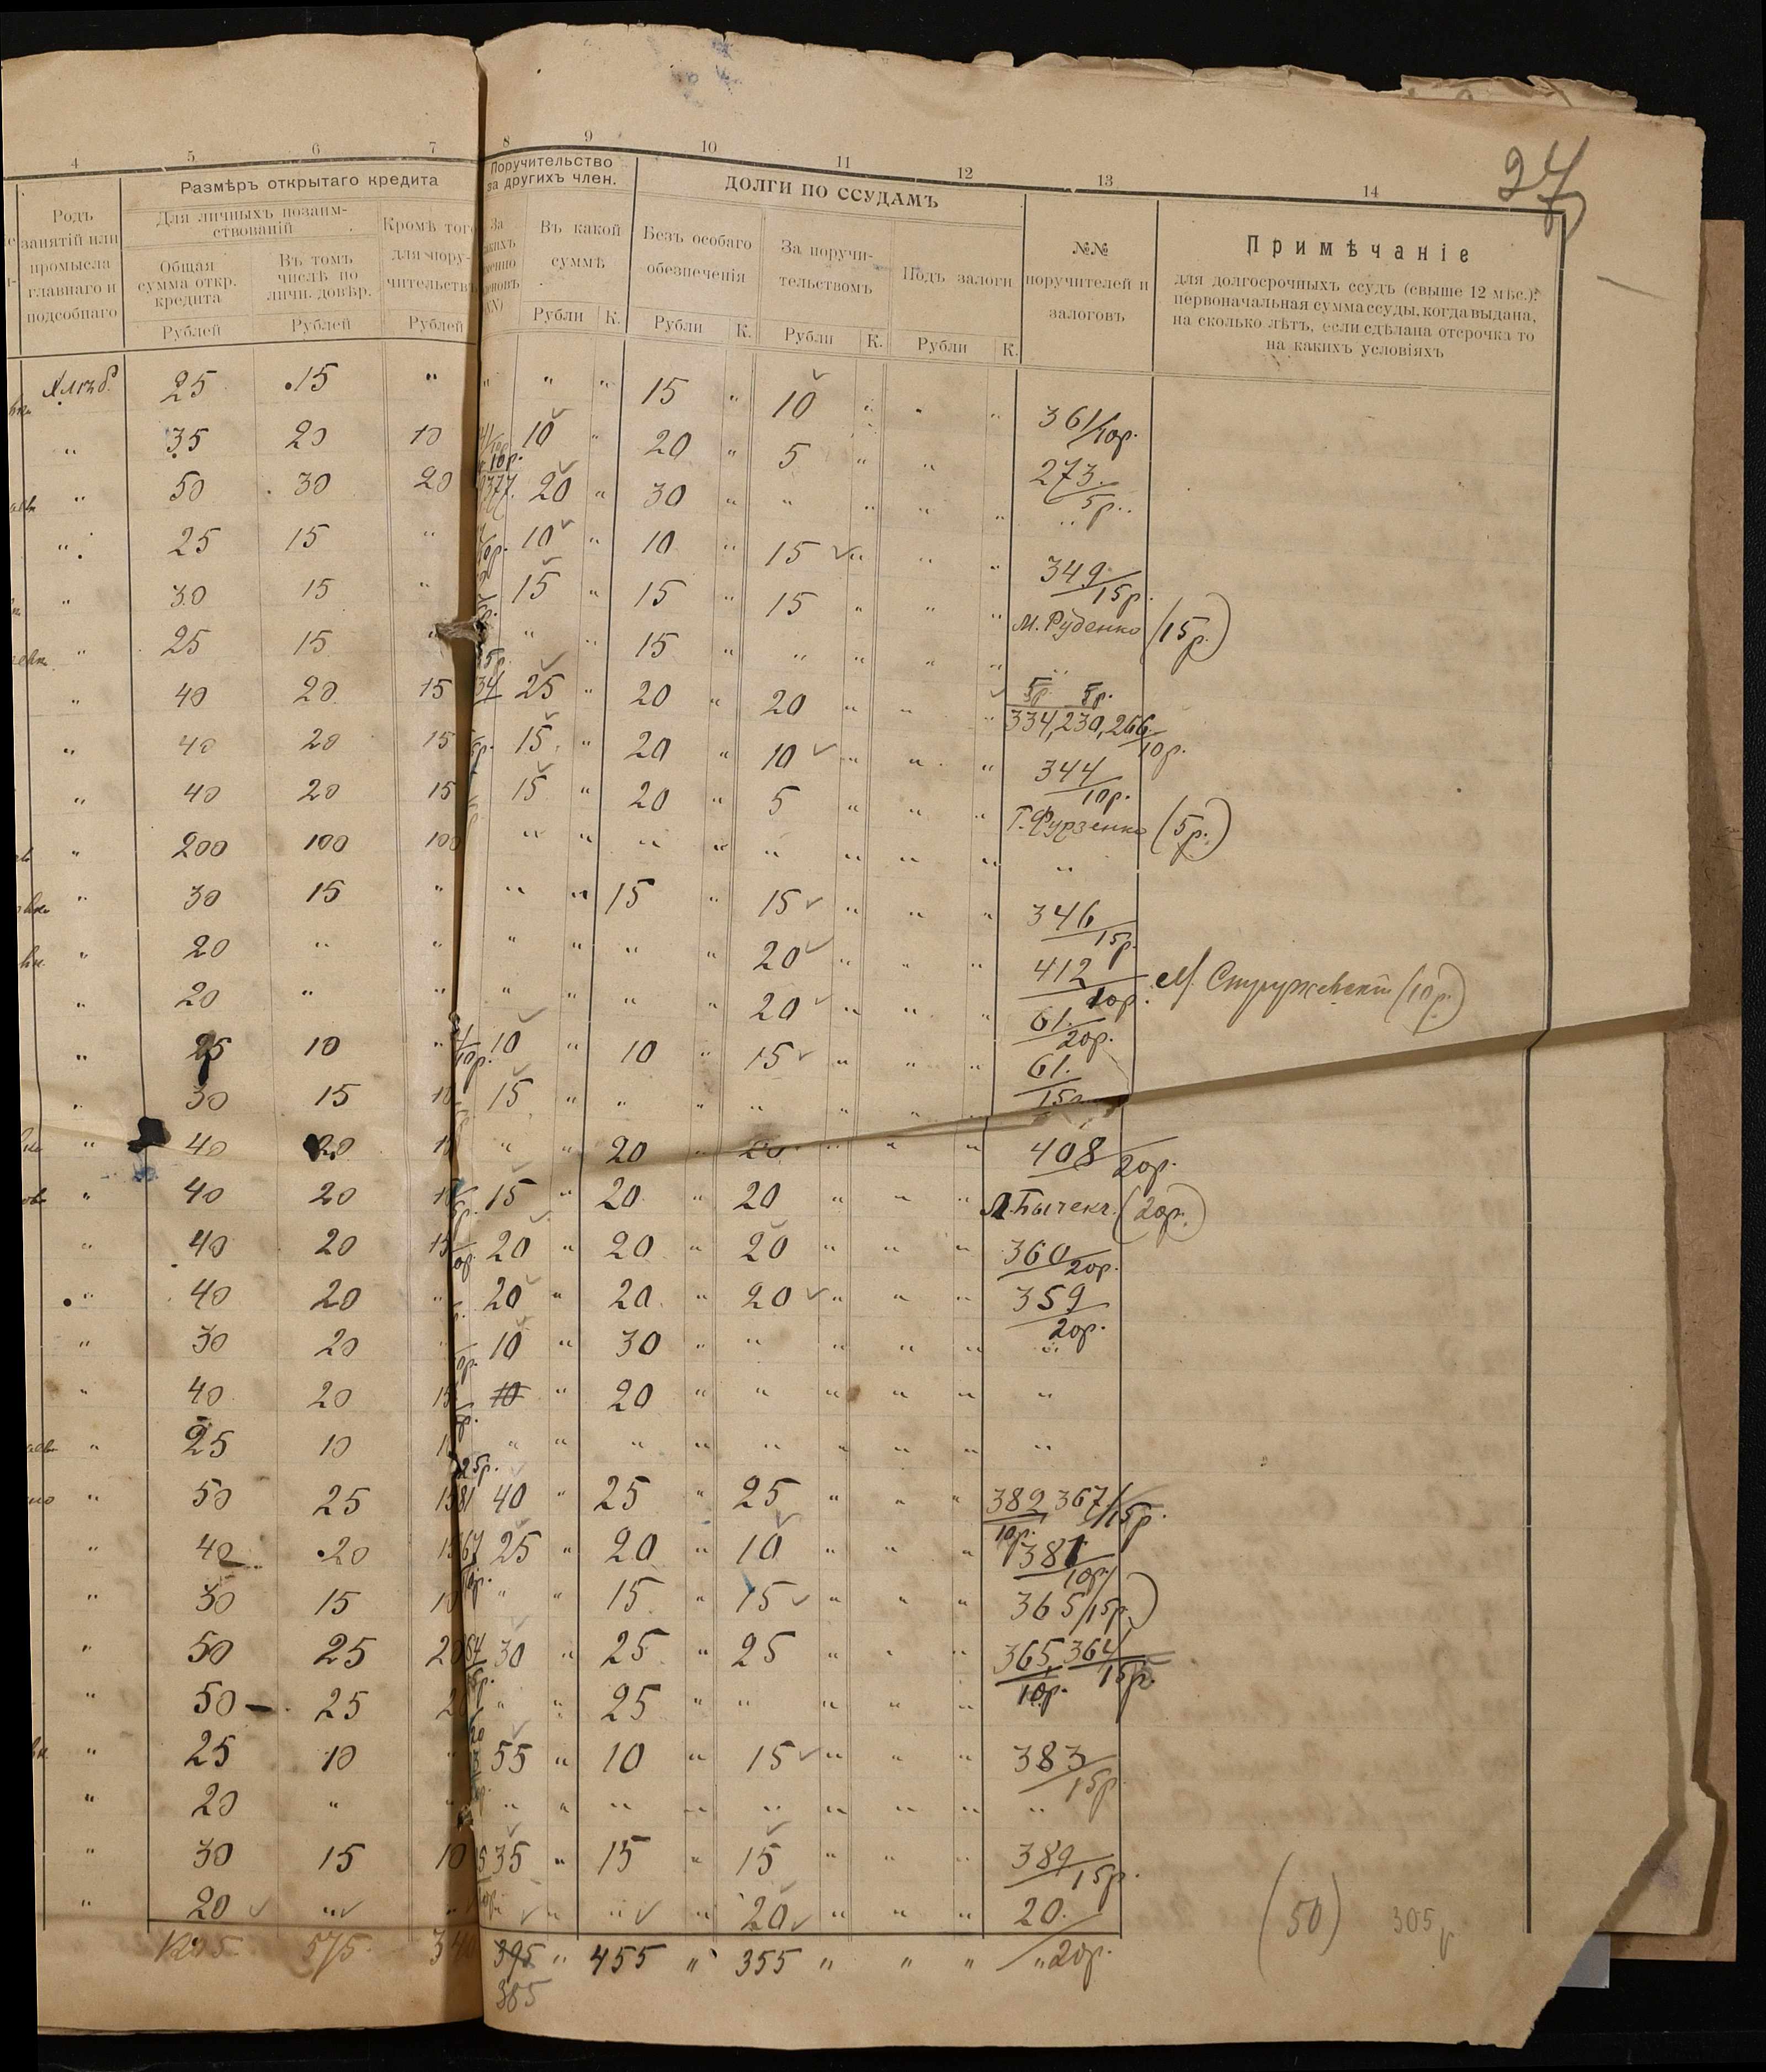 27
4 5 6 7 8 9 10 11 12 13 14
Родъ занятій или промысла главнаго и подсобнаго
Размѣръ открытаго кредита
Для личныхъ позаимствованій
Общая сумма откр. кредита
Въ томъ числѣ по личн. довѣр.
Кромѣ того для поручительствъ
Рублей Рублей Рублей
Поручительство за другихъ член.
За
Въ какой суммѣ
Рубли К.
ДОЛГИ ПО ССУДАМЪ
Безъ особаго обезпеченія
За поручительствомъ
Подъ залоги
Рубли К. Рубли К. Рубли К.
№№ поручителей и залоговъ
Примѣчаніе
для долгосрочныхъ ссудъ (свыше 12 мѣс.):
первоначальная сумма ссуды, когда выдана,
на сколько лѣтъ, если сдѣлана отсрочка то
на какихъ условіяхъ
Хлѣб. 25 15 " " " " 15 " 10 " " " 361/10р.
" 35 20 10 10 " 20 " 5 " " 273/5р.
" 50 30 20 377 20 " 30 " " " " " "
" 25 15 " 10 " 10 " 15 " " " 349/15р.
" 30 15 " 15 " 15 " 15 " " " М. Руденко (15р.)
" 25 15 " " " 15 " " " " " "
" 40 20 15 34 25 " 20 " 20 " " " 5р. 5р. 334, 230, 266/10р.
" 40 20 15 15 " 20 " 10 " " " 344/10р.
" 40 20 15 15 " 20 " 5 " " " Г. Фурзенко (5р.)
" 200 100 100 " " " " " " " " "
" 30 15 " " " 15 " 15 " " " 346/15р.
" 20 " " " " " " 20 " " " 412/10р. М. Стружевскій (10р.)
" 20 " " " " " " 20 " " " 61./20р.
" 25 10 " 10р. 10 " 10 " 15 " " " 61./15р.
" 30 15 10 15 " " " " " " "
" 40 20 " " 20 " 20 " " " 408/20р.
" 40 20 15 " 20 " 20 " " " (20р.)
" 40 20 15 20 " 20 " 20 " " " 360/20р.
" 40 20 " 20 " 20 " 20 " " " 359/20р.
" 30 20 " 10 " 30 " " " " " "
" 40 20 15 10 " 20 " " " " " "
" 25 10 " " " " " " " " "
25р.
" 50 25 15 81 40 " 25 " 25 " " " 382/10р., 367/15р.
" 40 20 67 25 " 20 " 10 " " " 381/10р.
" 30 15 10 " " 15 " 15 " " " 365/15р.
" 50 25 20 64 30 " 25 " 25 " " " 365/10р., 364/15р.
" 50 25 20 " " 25 " " " " "
" 25 10 " 55 " 10 " 15 " " " 383/15р.
" 20 " " " " " " " " " " "
" 30 15 10 35 " 15 " 15 " " " 389/15р.
" 20 " " " " " 20 " " " 20./20р.
575 395 " 455 " 355 " " " "
385
(50) 305